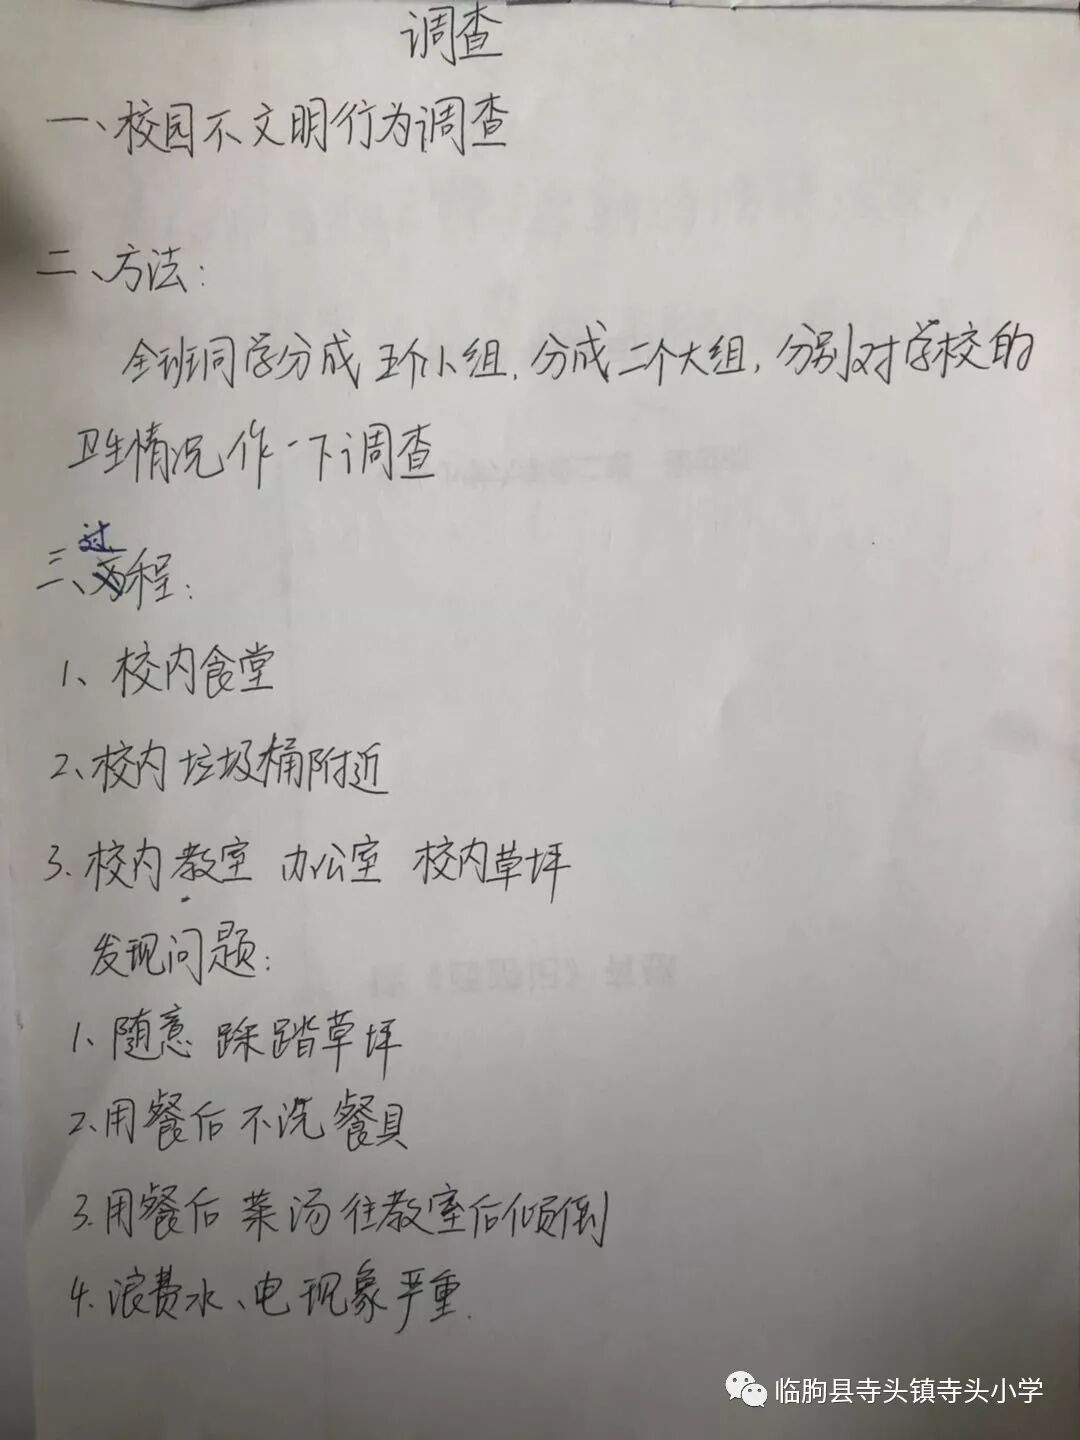 调查
一、校园不文明行为调查
二、方法:
全班同学分成五个小组,分成二个大组,分别对学校的
卫生情况作一下调查
三、过程:
1、校内食堂
2、校内垃圾桶附近
3.校内教室 办公室 校内草坪
发现问题:
1、随意踩踏草坪
2.用餐后不洗餐具
3.用餐后菜汤往教室后倾倒
4.浪费水、电现象严重.
临朐县寺头镇寺头小学